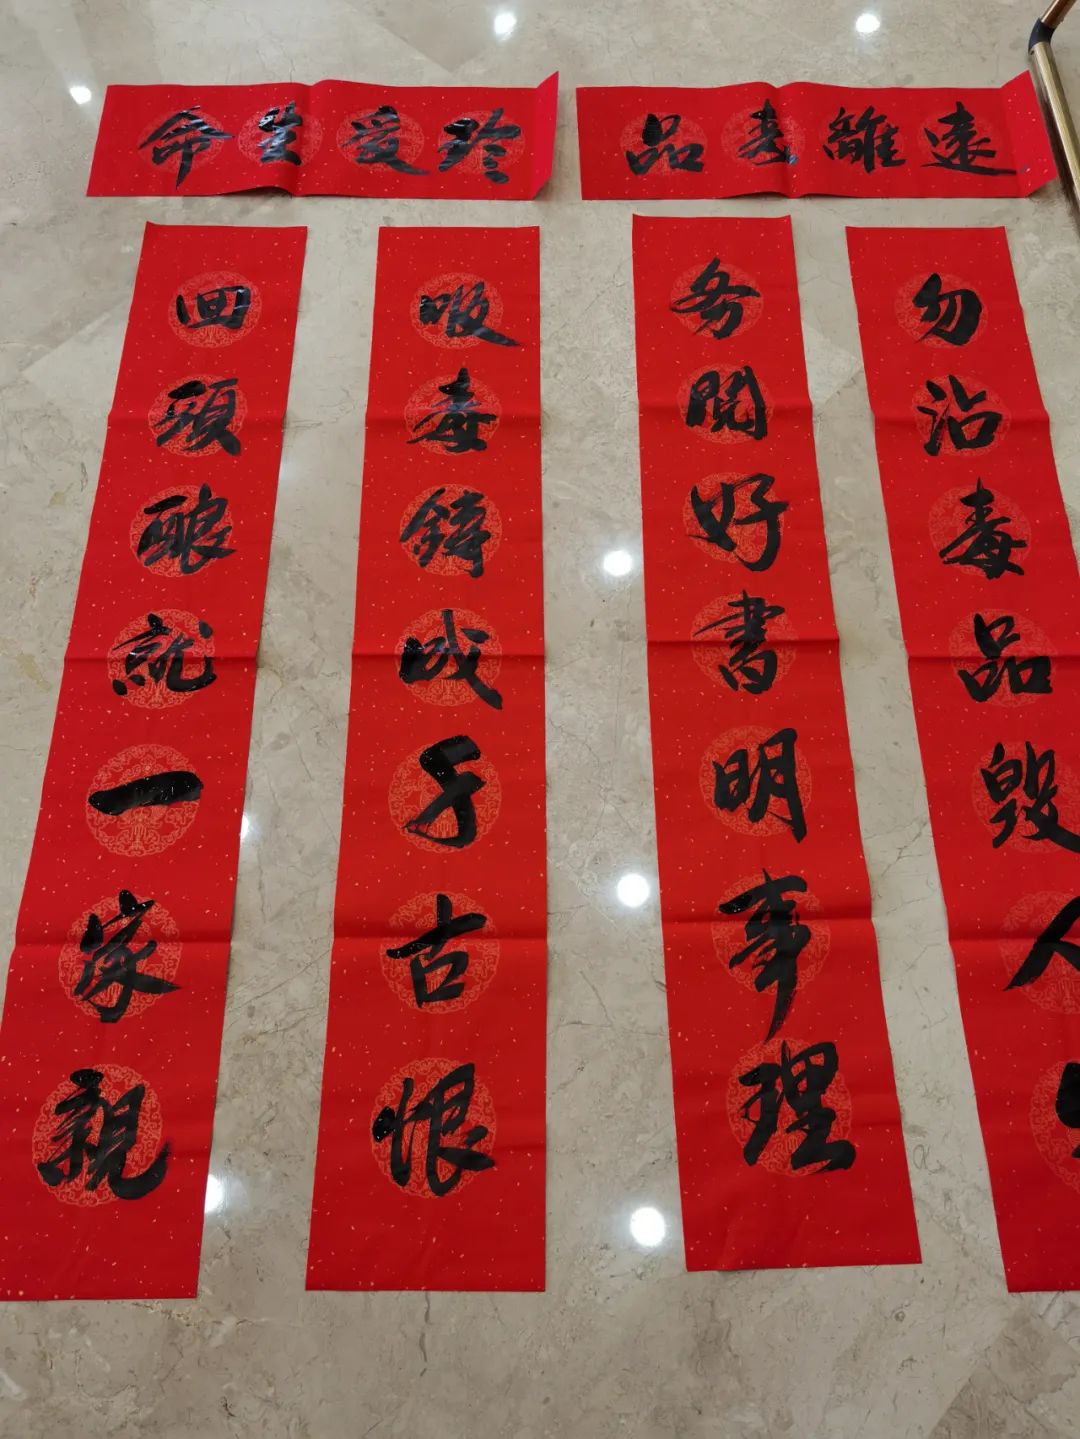 遠離毒品
珍爱生命
勿沾毒品毁人生
务閱好書明事理
吸毒鋳成千古恨
回頭酿就一家親